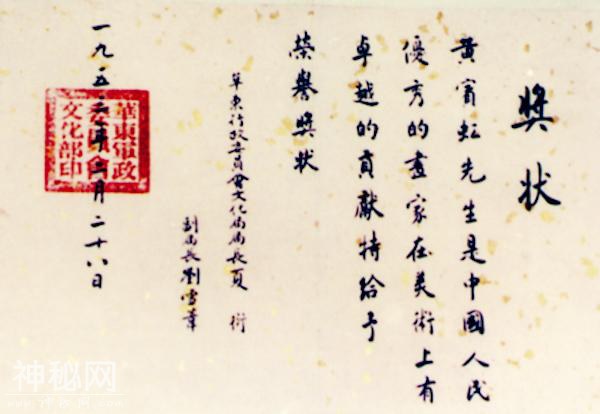 獎状
黄賓虹先生是中國人民
優秀的畫家在美術上有
卓越的貢獻特給予
榮譽獎状
華東行政委員會文化局局長夏衍
副局長劉雪葦
一九五三年二月二十八日
華東軍政
委員會
文化部印
神秘网